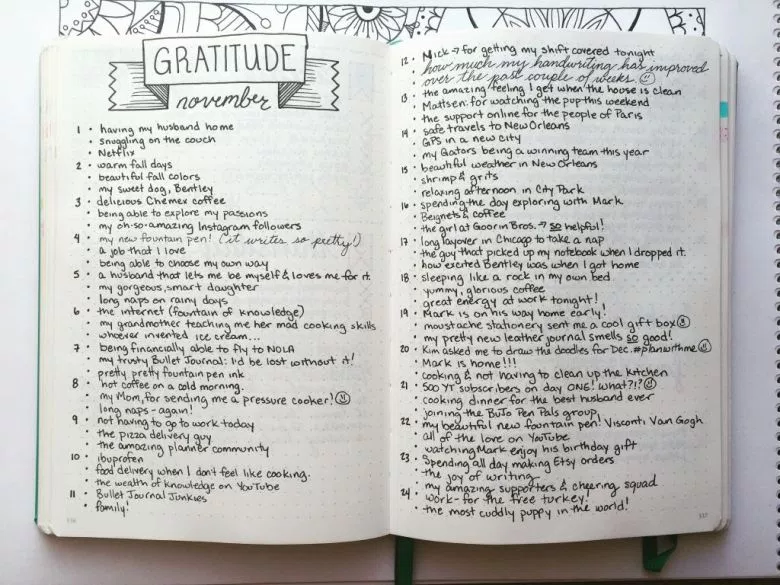 GRATITUDE
november
1 • having my husband home
• snuggling on the couch
• Netflix
2 • warm fall days
• beautiful fall colors
• my sweet dog, Bentley
3 • delicious Chemex coffee
• being able to explore my passions
• my oh-so-amazing Instagram followers
4 • my new fountain pen! (it writes so pretty!)
• a job that I love
• being able to choose my own way
5 • a husband that lets me be myself & loves me for it.
• my gorgeous, smart daughter
• long naps on rainy days
6 • the internet (fountain of knowledge)
• my grandmother teaching me her mad cooking skills
• whoever invented ice cream...
7 • being financially able to fly to NOLA
• my trusty Bullet Journal: I'd be lost without it!
• pretty pretty fountain pen ink
8 • hot coffee on a cold morning.
• my Mom, for sending me a pressure cooker! ☺
• long naps - again!
9 • not having to go to work today
• the pizza delivery guy
• the amazing planner community
10 • ibuprofen
• food delivery when I don't feel like cooking.
• the wealth of knowledge on YouTube
11 • Bullet Journal Junkies
• family!
116
12 • Mick → for getting my shift covered tonight
• how much my handwriting has improved
over the past couple of weeks. ☺
13 • the amazing feeling I get when the house is clean
• Mattsen: for watching the pup this weekend
• the support online for the people of Paris
14 • safe travels to New Orleans
• GPS in a new city
• my Gators being a winning team this year
15 • beautiful weather in New Orleans
• shrimp & grits
• relaxing afternoon in City Park
16 • spending the day exploring with Mark
• Beignets & coffee
• the girl at Goorin Bros. → so helpful!
17 • long layover in Chicago to take a nap
• the guy that picked up my notebook when I dropped it.
• how excited Bentley was when I got home
18 • sleeping like a rock in my own bed.
• yummy, glorious coffee
• great energy at work tonight!
19 • Mark is on his way home early!
• moustache stationery sent me a cool gift box ☺
• my pretty new leather journal smells so good!
20 • Kim asked me to draw the doodles for Dec. #planwithme ☺
• Mark is home!!!
• cooking & not having to clean up the kitchen
21 • 500 YT subscribers on day ONE! what?!? ☺
• cooking dinner for the best husband ever
• joining the BuJo Pen Pals group
22 • my beautiful new fountain pen! Visconti Van Gogh
• all of the love on YouTube
• watching Mark enjoy his birthday gift
23 • Spending all day making Etsy orders
• the joy of writing
• my amazing supporters & cheering squad
24 • work - for the free turkey!
• the most cuddly puppy in the world!
117